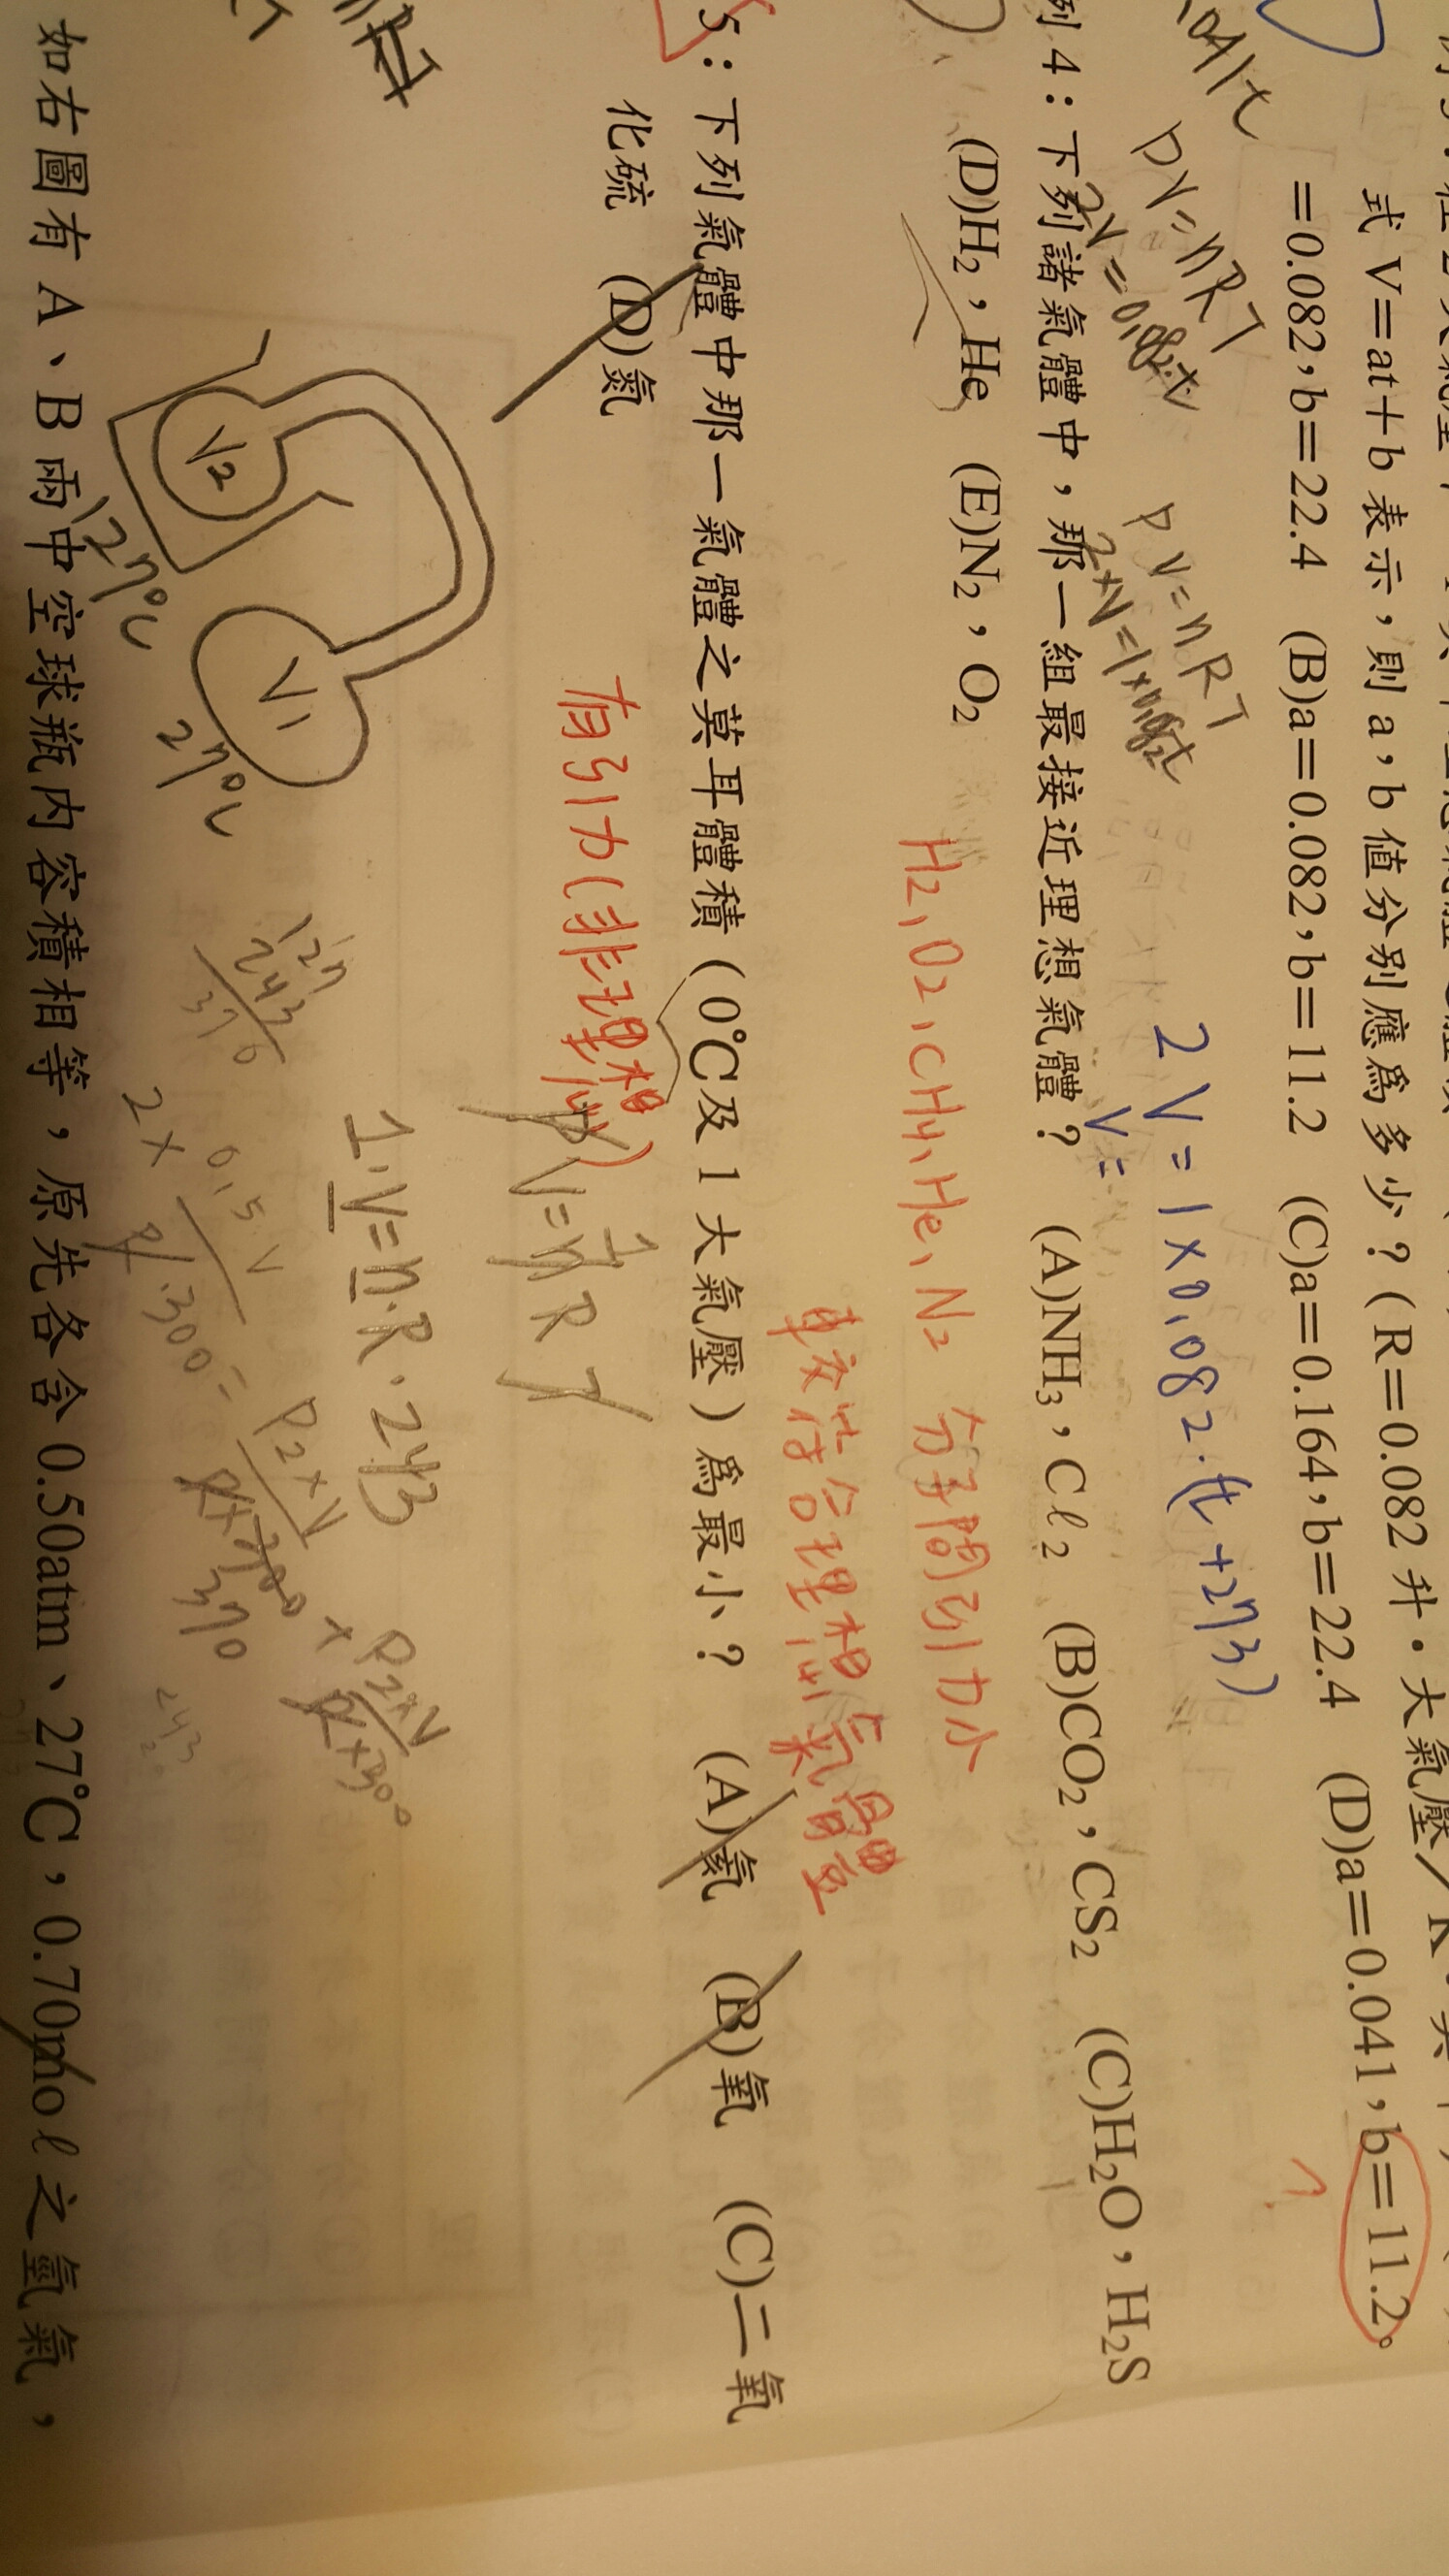 式 V=at+b 表示，則 a，b 值分別應爲多少？(R=0.082 升·大氣壓／K·
=0.082，b=22.4 (B)a=0.082，b=11.2 (C)a=0.164，b=22.4 (D)a=0.041，b=11.2。
PV=nRT
2V=0.082·t
PV=nRT
2×V=1×0.082t
2V=1×0.082·(t+273)
V=
列 4：下列諸氣體中，那一組最接近理想氣體？ (A)NH₃，Cℓ₂ (B)CO₂，CS₂ (C)H₂O，H₂S
(D)H₂，He (E)N₂，O₂
H₂, O₂, CH₄, He, N₂ 分子間引力小
較符合理想氣體
5：下列氣體中那一氣體之莫耳體積（0°C及 1 大氣壓）爲最小？ (A)氦 (B)氧 (C)二氧
化硫 (D)氮
有引力(非理想)
V=nRT
1
1·V=n·R·273
V2
127°C
V1
27°C
如右圖有 A、B 兩中空球瓶內容積相等，原先各含 0.50atm、27°C，0.70moℓ之氫氣，